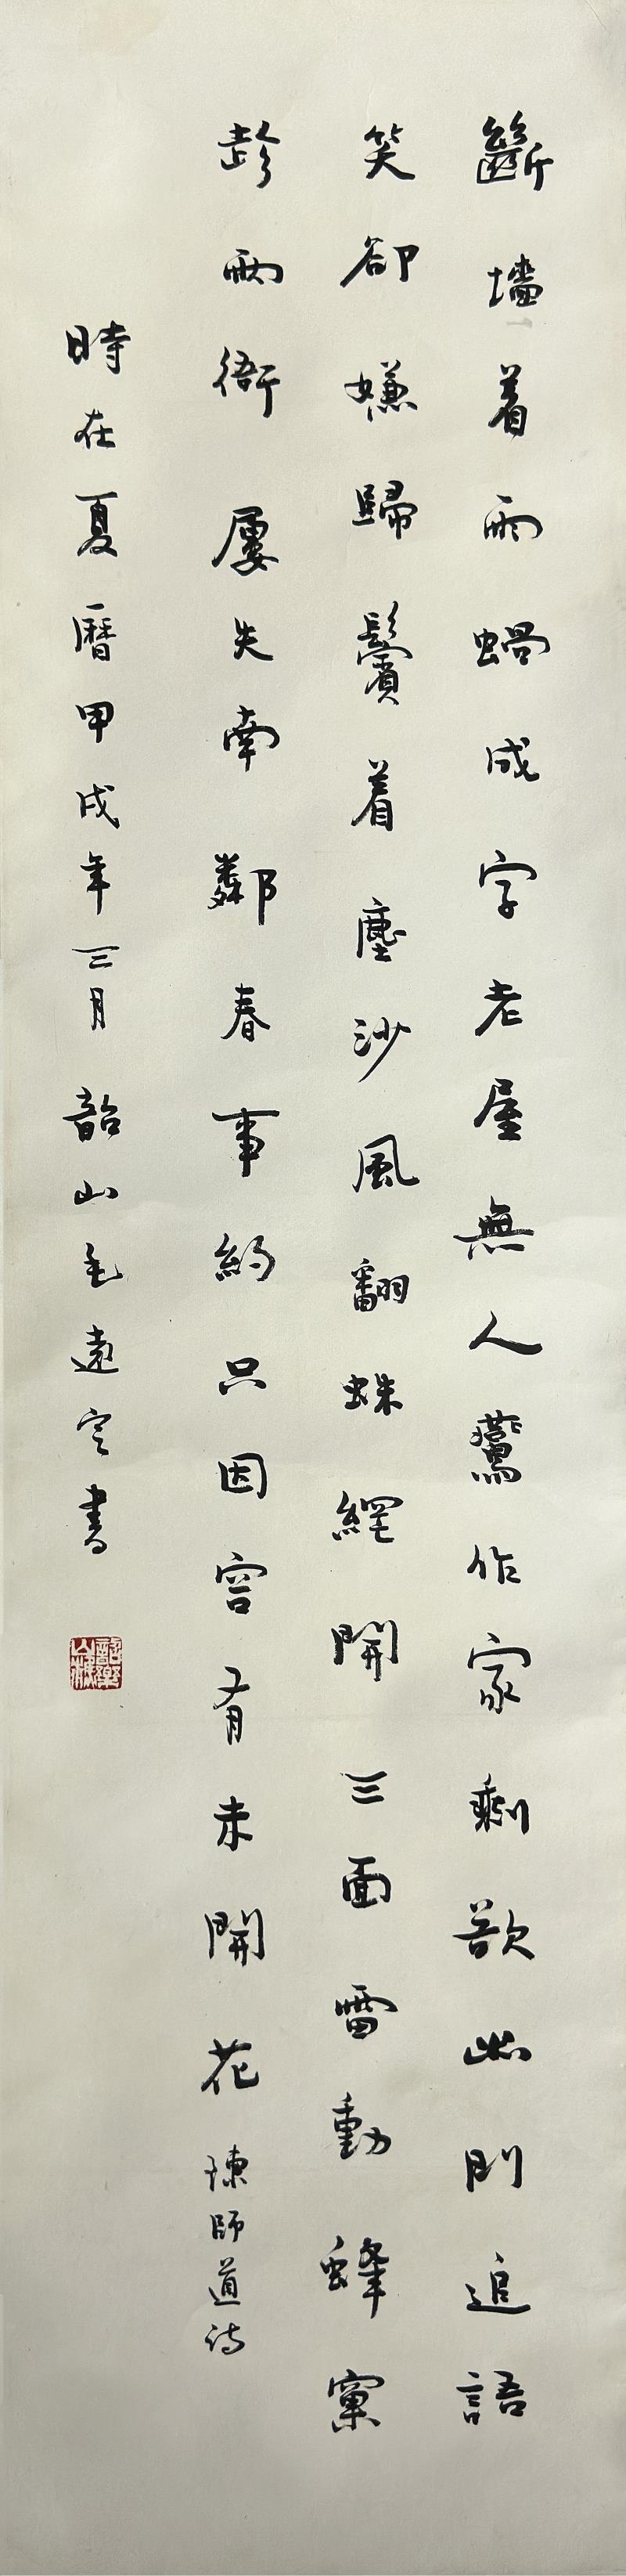 斷墻着雨蝸成字老屋無人鷰作家剩欲出門追語
笑卻嫌歸鬢着塵沙風翻蛛網開三面雷動蜂窠
趁兩衙屢失南鄰春事約只因容有未開花 陳師道詩
時在夏曆甲戌年三月韶山毛遠定書